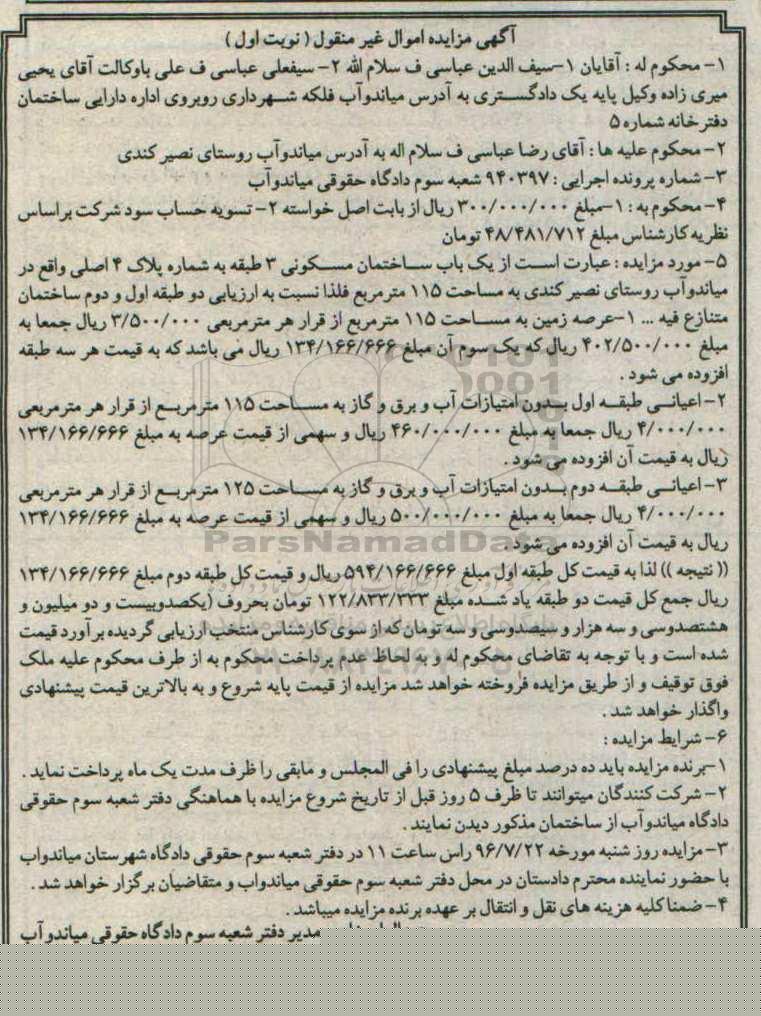 آگهی مزایده اموال غیر منقول ( نوبت اول )
۱- محکوم له : آقایان ۱-سیف الدین عباسی ف سلام الله ۲- سیفعلی عباسی ف علی باوکالت آقای یحیی
میری زاده وکیل پایه یک دادگستری به آدرس میاندوآب فلکه شهرداری روبروی اداره دارایی ساختمان
دفترخانه شماره ۵
۲- محکوم علیه ها : آقای رضا عباسی ف سلام اله به آدرس میاندوآب روستای نصیر کندی
۳- شماره پرونده اجرایی : ۹۴۰۳۹۷ شعبه سوم دادگاه حقوقی میاندوآب
۴- محکوم به : ۱-مبلغ ۳۰۰/۰۰۰/۰۰۰ ریال از بابت اصل خواسته ۲- تسویه حساب سود شرکت براساس
نظریه کارشناس مبلغ ۴۸/۴۸۱/۷۱۲ تومان
۵- مورد مزایده : عبارت است از یک باب ساختمان مسکونی ۳ طبقه به شماره پلاک ۴ اصلی واقع در
میاندوآب روستای نصیر کندی به مساحت ۱۱۵ مترمربع فلذا نسبت به ارزیابی دو طبقه اول و دوم ساختمان
متنازع فیه ... ۱-عرصه زمین به مساحت ۱۱۵ مترمربع از قرار هر مترمربعی ۳/۵۰۰/۰۰۰ ریال جمعا به
مبلغ ۴۰۲/۵۰۰/۰۰۰ ریال که یک سوم آن مبلغ ۱۳۴/۱۶۶/۶۶۶ ریال می باشد که به قیمت هر سه طبقه
افزوده می شود .
۲- اعیانی طبقه اول بدون امتیازات آب و برق و گاز به مساحت ۱۱۵ مترمربع از قرار هر مترمربعی
۴/۰۰۰/۰۰۰ ریال جمعا به مبلغ ۴۶۰/۰۰۰/۰۰۰ ریال و سهمی از قیمت عرصه به مبلغ ۱۳۴/۱۶۶/۶۶۶
ریال به قیمت آن افزوده می شود .
۳- اعیانی طبقه دوم بدون امتیازات آب و برق و گاز به مساحت ۱۲۵ مترمربع از قرار هر مترمربعی
۴/۰۰۰/۰۰۰ ریال جمعا به مبلغ ۵۰۰/۰۰۰/۰۰۰ ریال و سهمی از قیمت عرصه به مبلغ ۱۳۴/۱۶۶/۶۶۶
ریال به قیمت آن افزوده می شود .
ParsNamadData
(( نتیجه )) لذا به قیمت کل طبقه اول مبلغ ۵۹۴/۱۶۶/۶۶۶ ریال و قیمت کل طبقه دوم مبلغ ۱۳۴/۱۶۶/۶۶۶
ریال جمع کل قیمت دو طبقه یاد شده مبلغ ۱۲۲/۸۳۳/۳۳۳ تومان بحروف (یکصدوبیست و دو میلیون و
هشتصدوسی و سه هزار و سیصدوسی و سه تومان که از سوی کارشناس منتخب ارزیابی گردیده برآورد قیمت
شده است و با توجه به تقاضای محکوم له و به لحاظ عدم پرداخت محکوم به از طرف محکوم علیه ملک
فوق توقیف و از طریق مزایده فروخته خواهد شد مزایده از قیمت پایه شروع و به بالاترین قیمت پیشنهادی
واگذار خواهد شد .
۶- شرایط مزایده :
۱-برنده مزایده باید ده درصد مبلغ پیشنهادی را فی المجلس و مابقی را ظرف مدت یک ماه پرداخت نماید .
۲- شرکت کنندگان میتوانند تا ظرف ۵ روز قبل از تاریخ شروع مزایده با هماهنگی دفتر شعبه سوم حقوقی
دادگاه میاندوآب از ساختمان مذکور دیدن نمایند .
۳- مزایده روز شنبه مورخه ۹۶/۷/۲۲ راس ساعت ۱۱ در دفتر شعبه سوم حقوقی دادگاه شهرستان میاندواب
با حضور نماینده محترم دادستان در محل دفتر شعبه سوم حقوقی میاندواب و متقاضیان برگزار خواهد شد .
۴- ضمنا کلیه هزینه های نقل و انتقال بر عهده برنده مزایده میباشد .
مدیر دفتر شعبه سوم دادگاه حقوقی میاندوآب